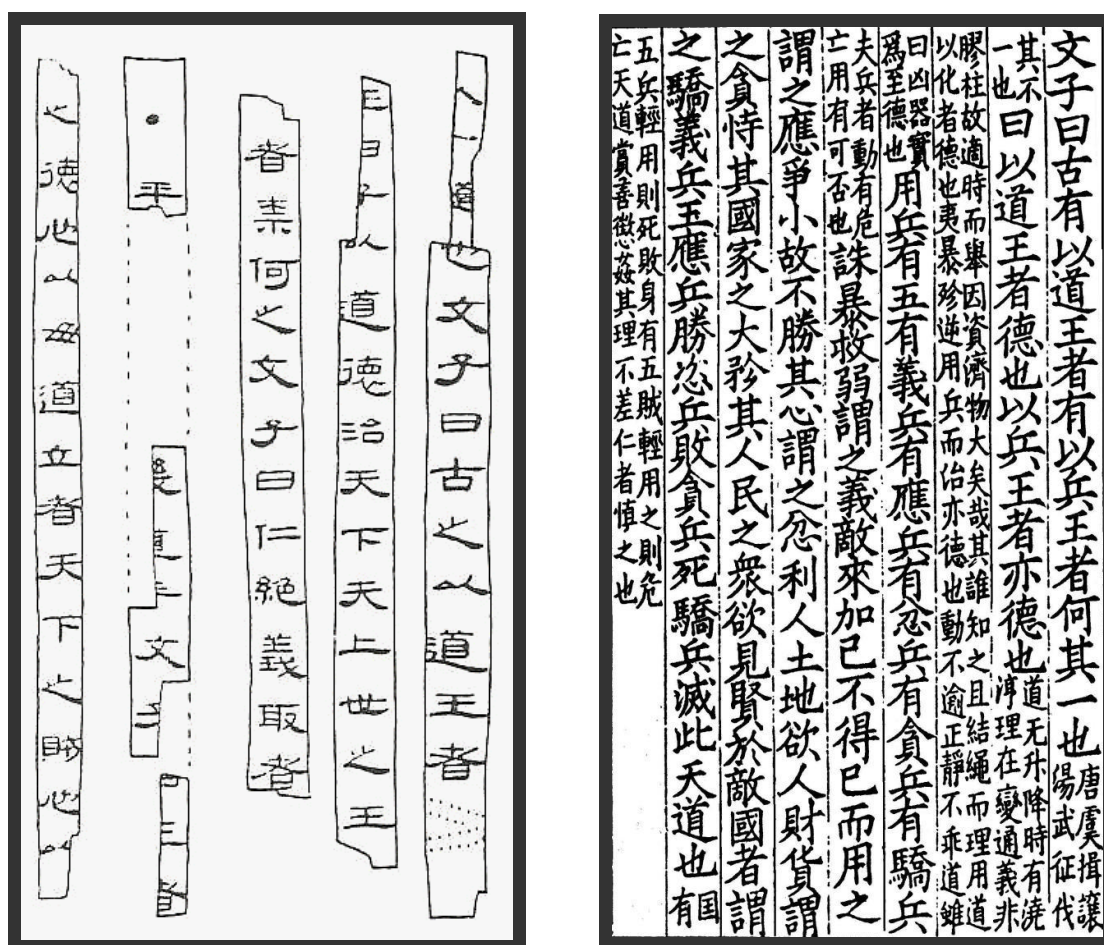 道也文子曰古之以道王者
王曰子以道德治天下夫上世之王
者柰何之文子曰仁絶義取者
·平
文子
曰王者
之德也以毋道立者天下之賊也以
文子曰古有以道王者有以兵王者何其一也唐虞揖讓湯武征伐
其不一也曰以道王者德也以兵王者亦德也道无升降時有澆淳理在變通義非
膠柱故適時而舉因資濟物大矣哉其誰知之且結繩而理用道以化者德也夷暴殄逆用兵而治亦德也動不逾正靜不乖道雖
曰凶器實爲至德也用兵有五有義兵有應兵有忿兵有貪兵有驕兵
夫兵者動有危亡用有可否也誅暴救弱謂之義敵來加已不得已而用之
謂之應爭小故不勝其心謂之忿利人土地欲人財貨謂
之貪恃其國家之大矜其人民之衆欲見賢於敵國者謂
之驕義兵王應兵勝忿兵敗貪兵死驕兵滅此天道也国有
五兵輕用則死敗身有五賊輕用之則危亡天道賞善懲姦其理不差仁者慎之也